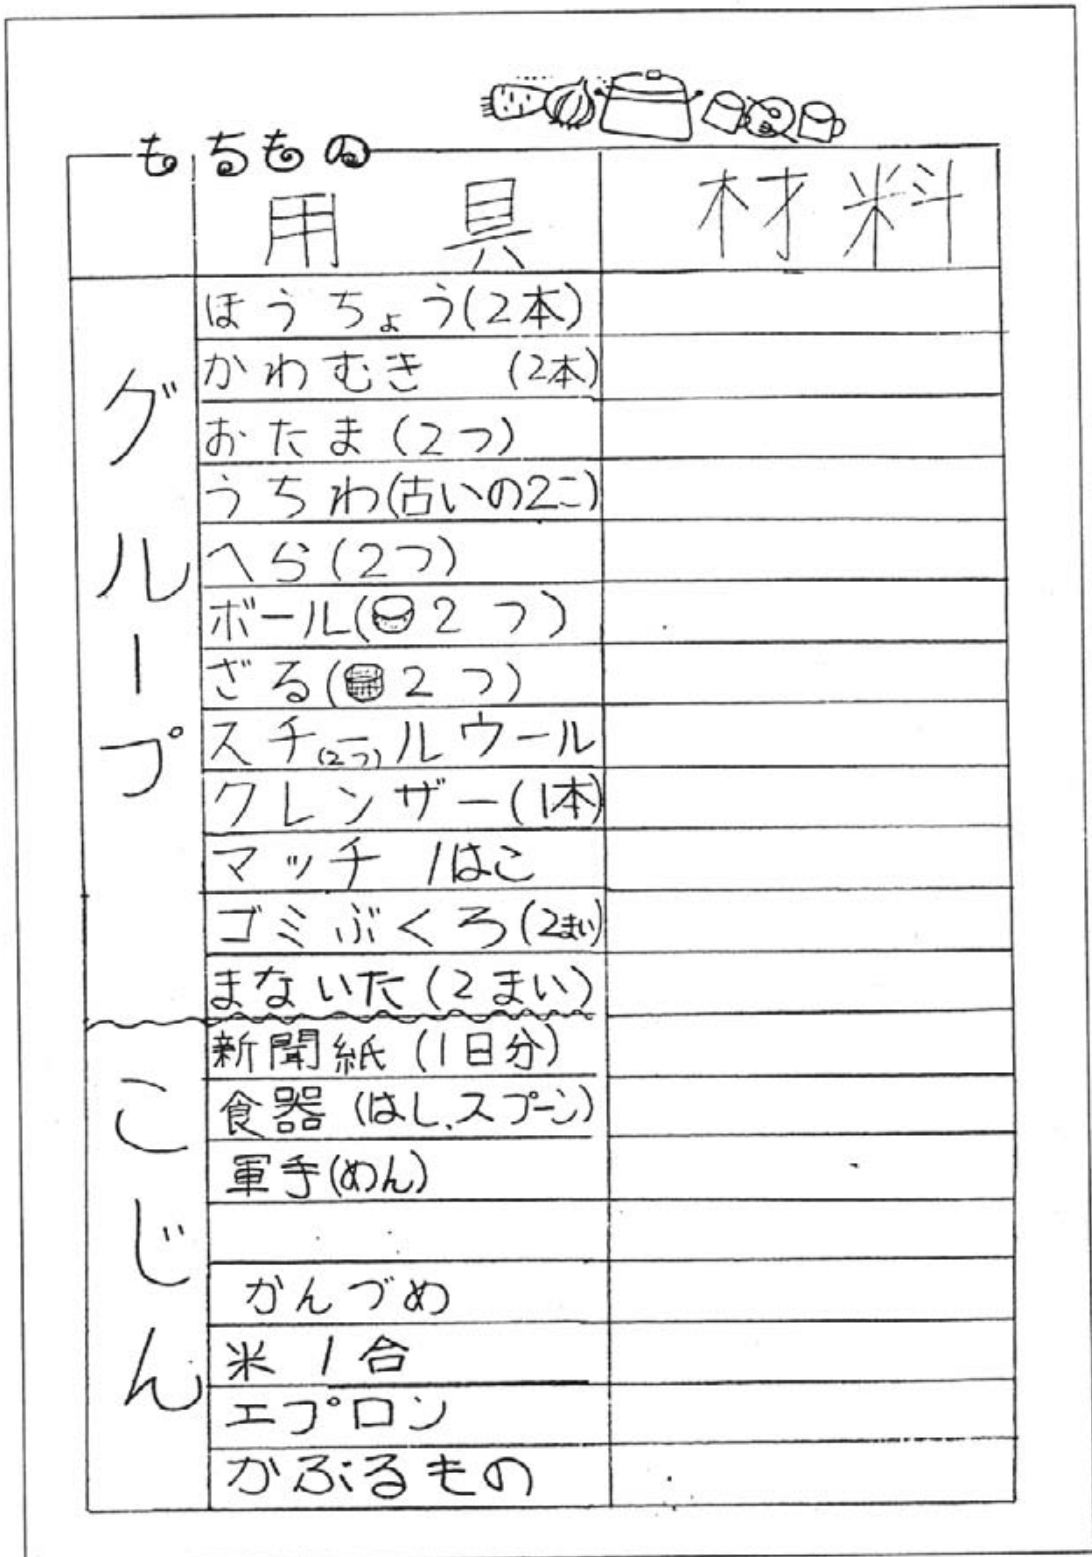 もちもの
用具 材料
グループ
ほうちょう(2本)
かわむき (2本)
おたま(2つ)
うちわ(古いの2こ)
へら(2つ)
ボール(2つ)
ざる(2つ)
スチールウール(2つ)
クレンザー(1本)
マッチ 1はこ
ゴミぶくろ(2まい)
まないた(2まい)
こじん
新聞紙(1日分)
食器(はし、スプーン)
軍手(めん)
かんづめ
米 1合
エプロン
かぶるもの